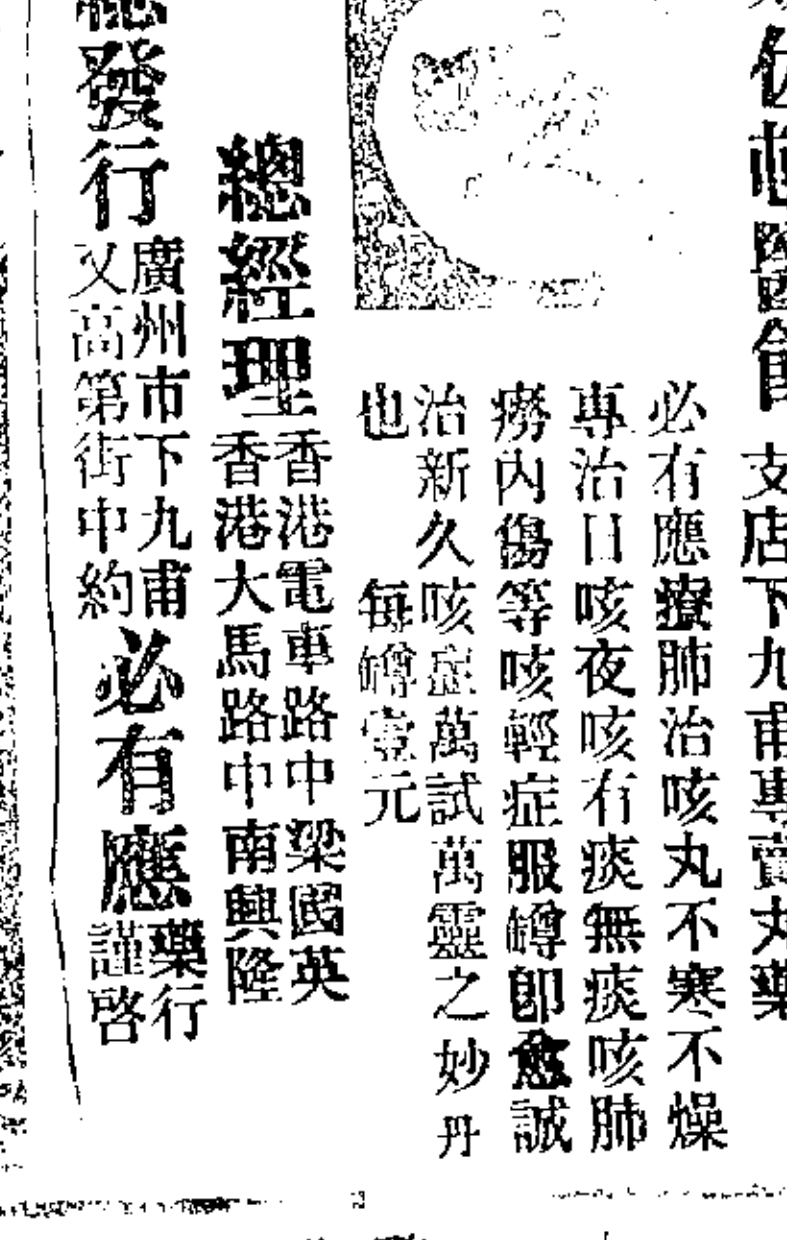 支店下九甫專賣丸藥
必有應療肺治咳丸不寒不燥
專治日咳夜咳有痰無痰咳肺
癆內傷等咳輕症服罇即愈誠
治新久咳症萬試萬靈之妙丹
也 每罇壹元
總經理
香港電車路中梁國英
香港大馬路中南興隆
總發行
廣州市下九甫
又高第街中約
必有應
藥行
謹啓